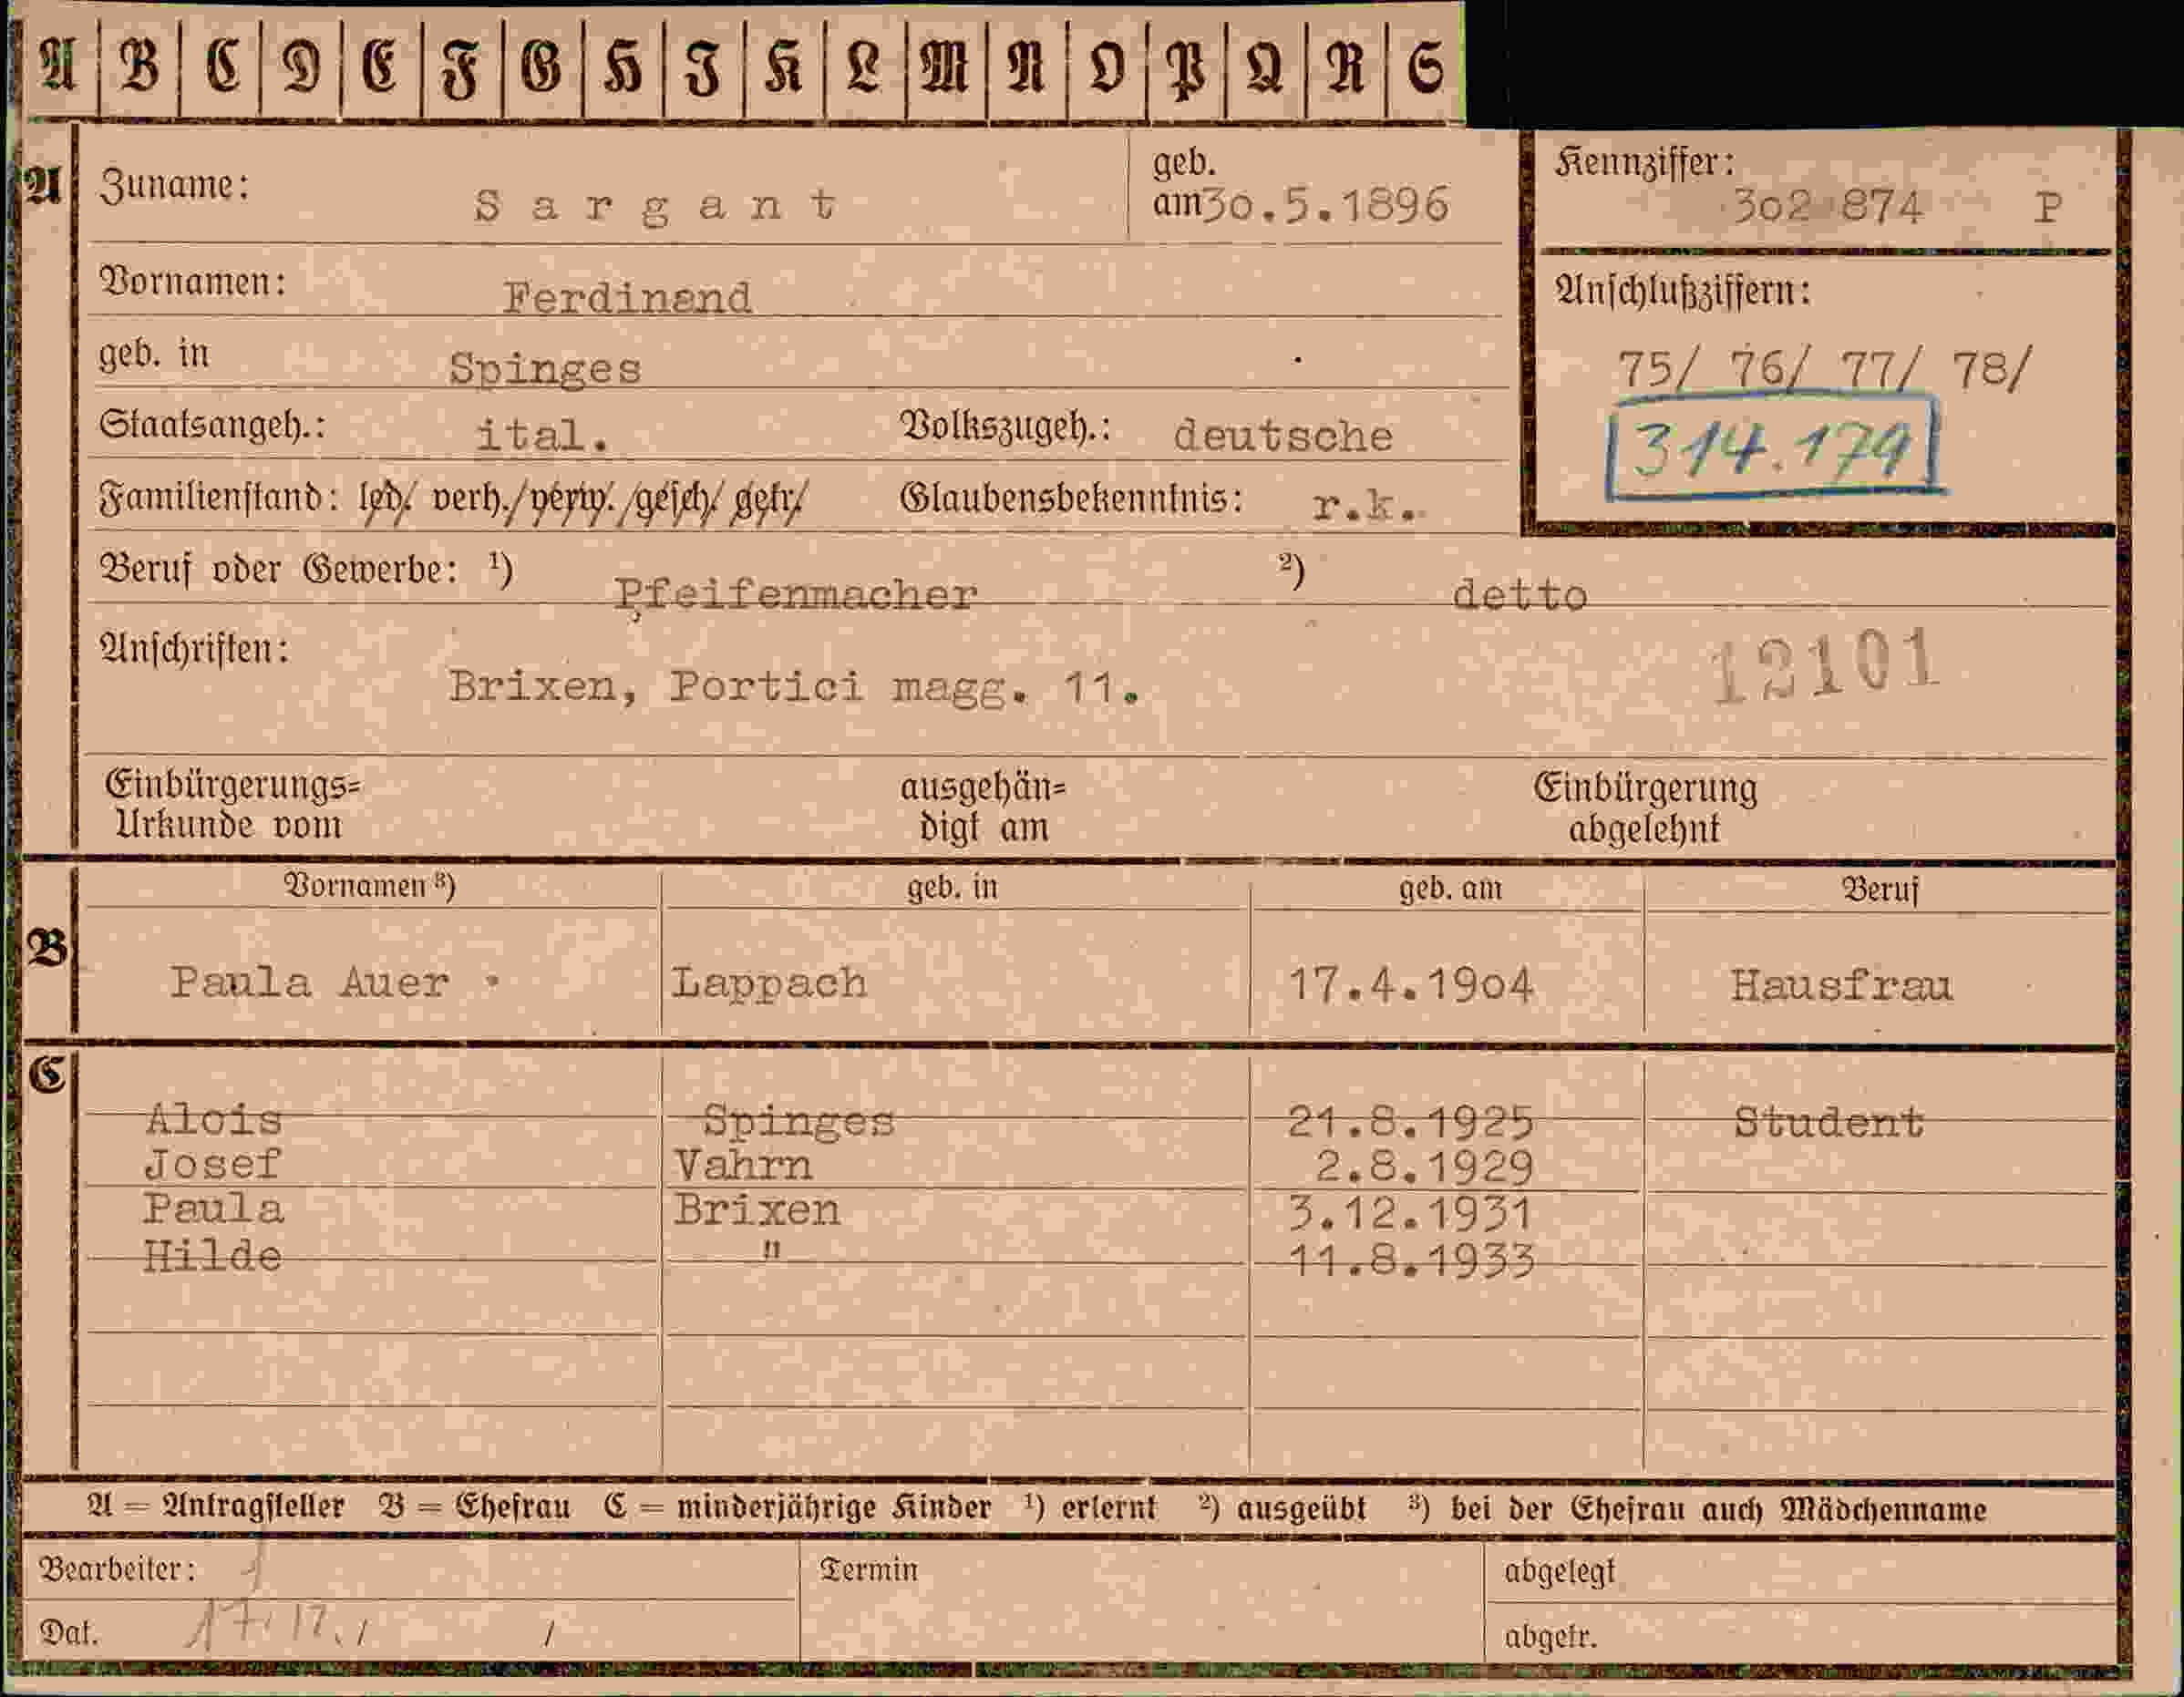 A B C D E F G H I K L M N O P Q R S
A Zuname: Sargant geb. am 30.5.1896
Kennziffer: 302 874 P
Vornamen: Ferdinand
Anschlußziffern:
geb. in Spinges
75/ 76/ 77/ 78/
Staatsangeh.: ital. Volkszugeh.: deutsche
314.179
Familienstand: led./ verh./ verw./ gesch/ getr/ Glaubensbekenntnis: r.k.
Beruf oder Gewerbe: ¹) Pfeifenmacher ²) detto
Anschriften:
Brixen, Portici magg. 11.
12101
Einbürgerungs= ausgehän= Einbürgerung
Urkunde vom digt am abgelehnt
Vornamen ³) geb. in geb. am Beruf
B Paula Auer Lappach 17.4.1904 Hausfrau
C
Alois Spinges 21.8.1925 Student
Josef Vahrn 2.8.1929
Paula Brixen 3.12.1931
Hilde " 11.8.1933
A = Antragsteller B = Ehefrau C = minderjährige Kinder ¹) erlernt ²) ausgeübt ³) bei der Ehefrau auch Mädchenname
Bearbeiter: Termin abgelegt
Dat. 17. 12. / / abgetr.